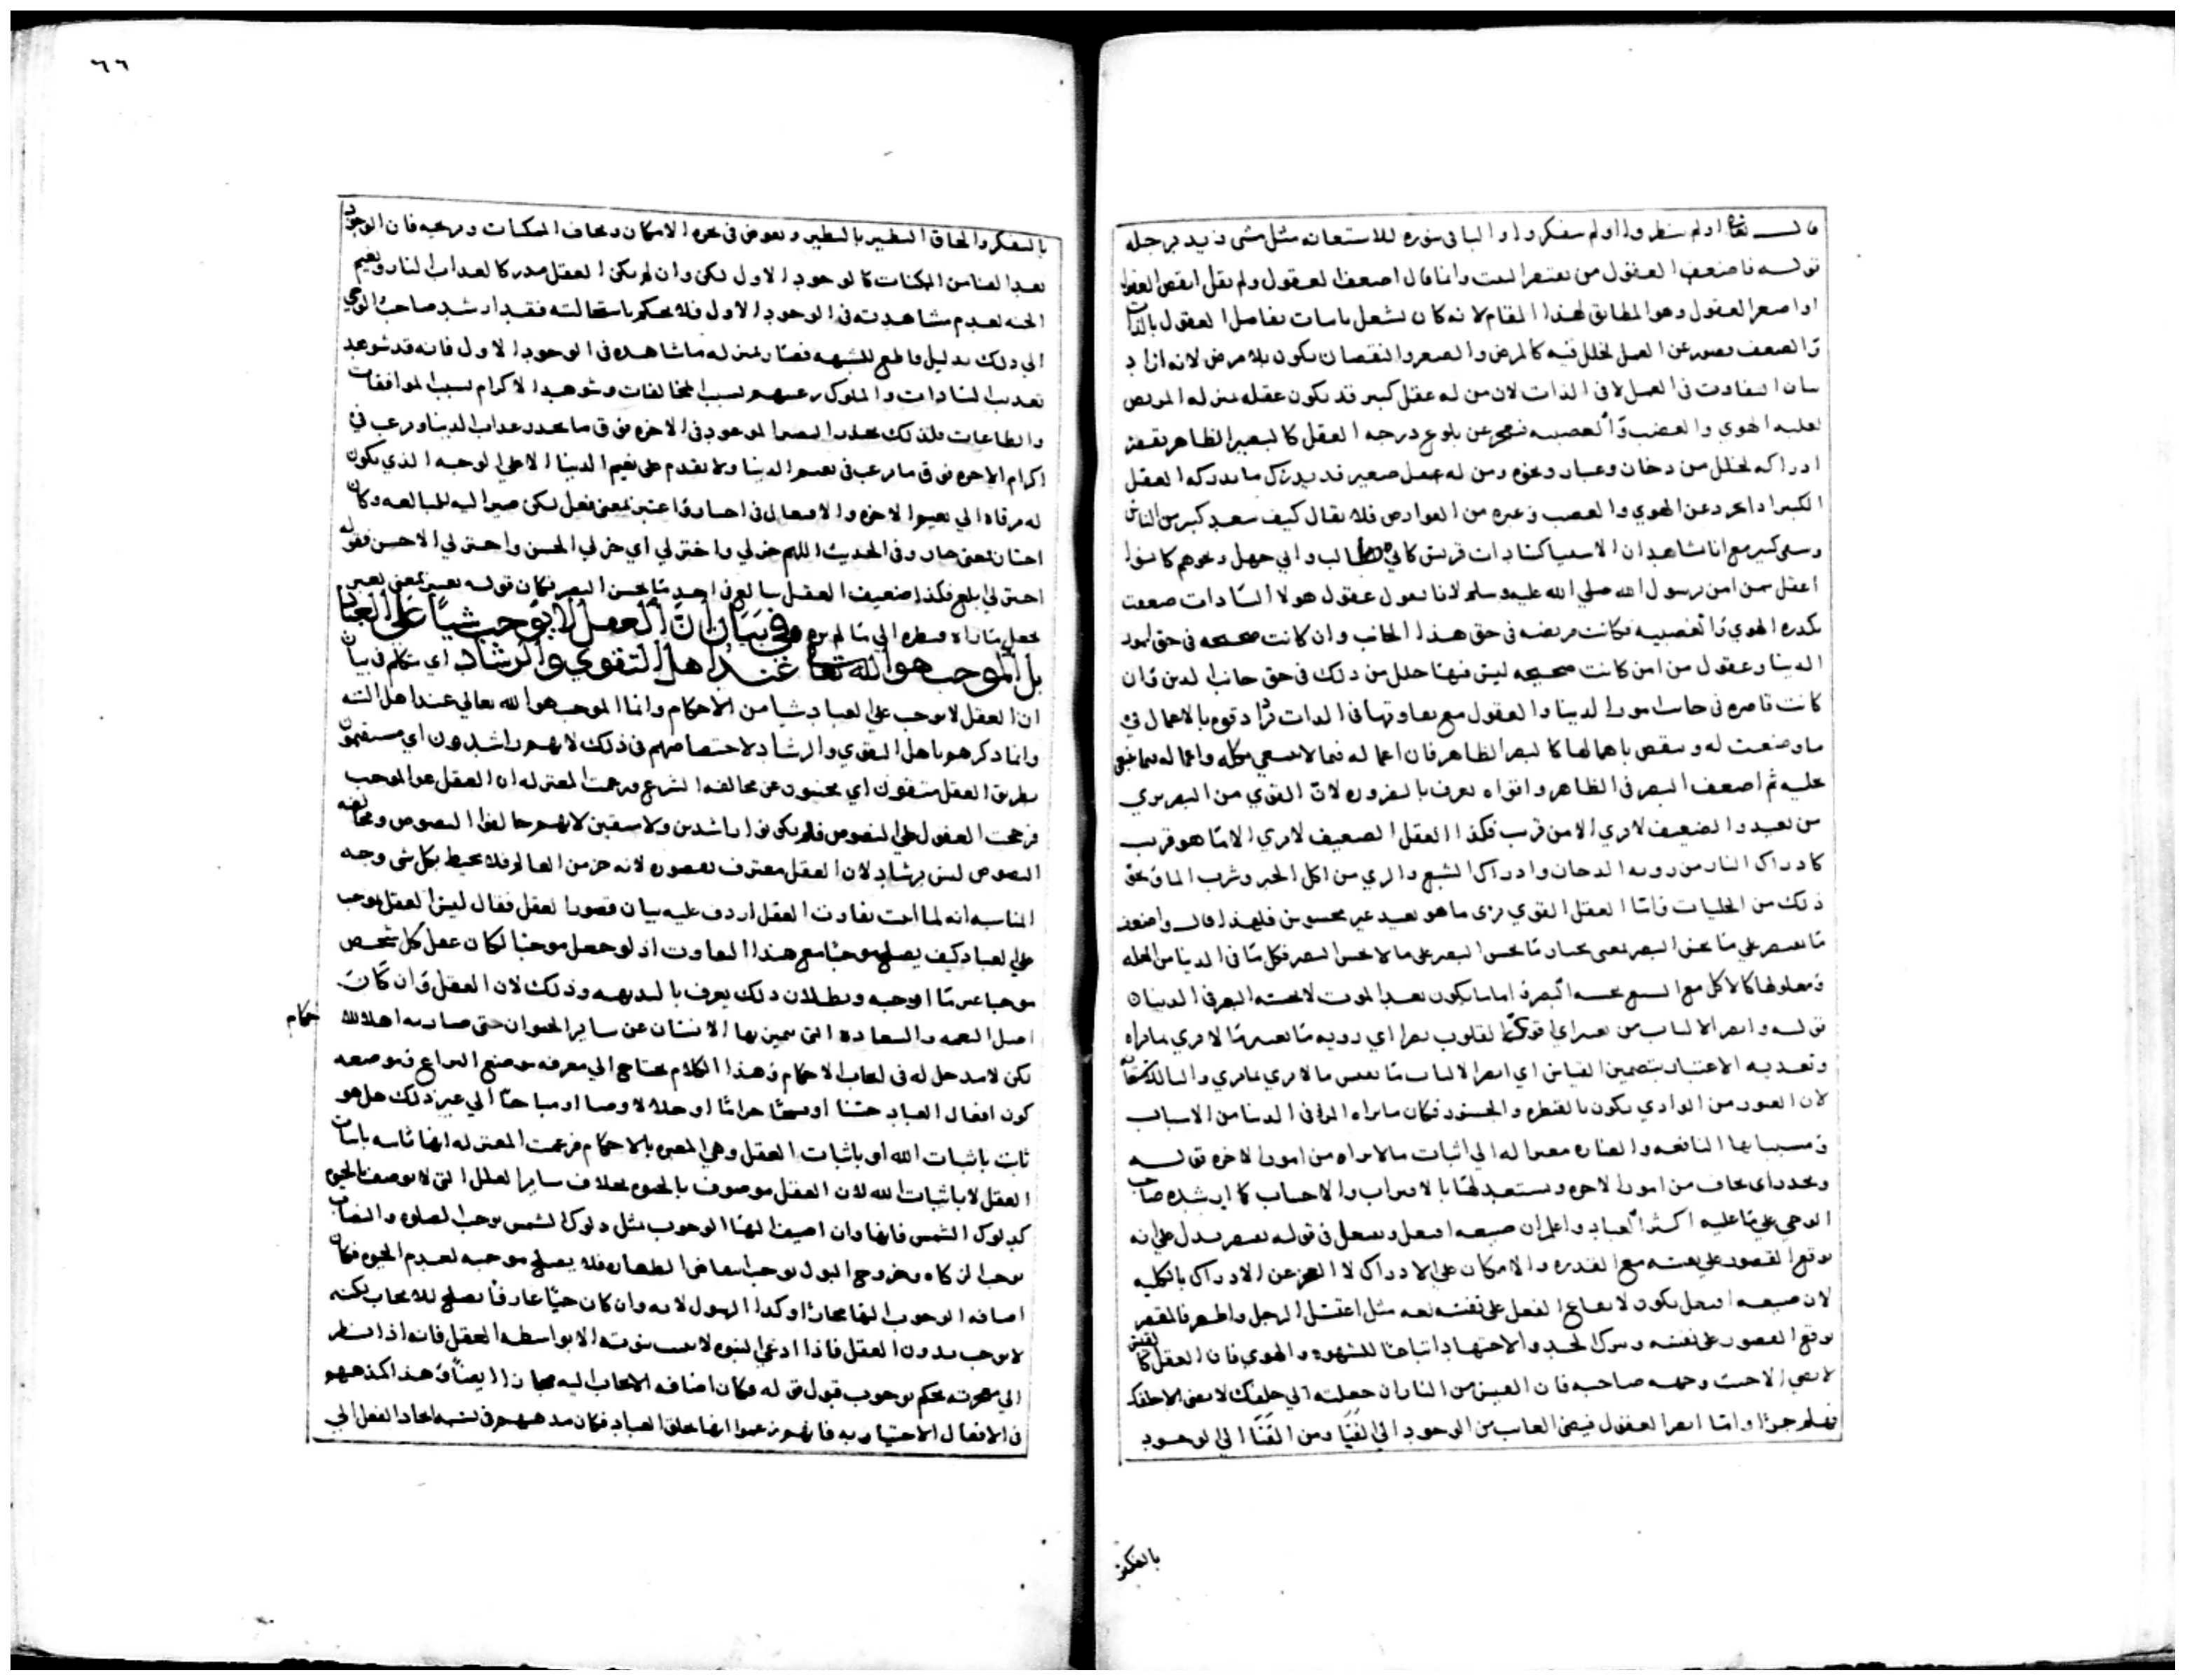 قال تعالى اولم ينظروا اولم يتفكروا والبا في بنوره للاستعانه مثل مشى زيد برجله
قوله فاضعف العقول من يقتصر وانما قال اضعف العقول ولم يقل انقص العقول
او اصغر العقول وهو المطابق لهذا المقام لانه كان لشغل باثبات تفاضل العقول بالذات
والضعف قصور عن العمل لخلل فيه كالمرض والصغر والنقصان يكون بلا مرض لانه اراد
بيان التفاوت في العمل لا في الذات لان من له عقل كبير قد يكون عقله بمنزله المريض
لغلبه الهوي والغضب والعصبيه فيعجز عن بلوغ درجه العقل كالبصير الظاهر يقصر
ادراكه لخلل من دخان وغبار ونحوه ومن له عقل صغير قد يدرك ما يدركه العقل
الكبير اذا تجرد عن الهوي والغضب وغيره من العوارض فلا يقال كيف سعد كبير من الناس
وشقي كبير مع انا نشاهد ان الاشقيا كسادات قريش كابي طالب وابي جهل ونحوهم كانوا
اعقل ممن امن برسول الله صلي الله عليه وسلم لانا نقول عقول هولا السادات ضعفت
بكدره الهوي والعصبيه فكانت مريضه في حق هذا الجانب وان كانت صحيحه في حق امور
الدنيا وعقول من امن كانت صحيحه ليس فيها خلل من ذلك في حق جانب الدين وان
كانت قاصره في جانب امور الدنيا والعقول مع تفاوتها في الذات تزداد قوه بالاعمال في
ما وضعت له وتنقص باهمالها كالبصر الظاهر فان اعماله فيما لا ينبغي يكله واعماله فيما ينبغي
يجليه ثم اضعف البصر في الظاهر واقواه يعرف بالضروره لان القوي من البصر يري
من بعيد والضعيف لا يري الا من قريب فكذا العقل الضعيف لا يري الا ما هو قريب
كادراك النار من رويه الدخان وادراك الشبع والري من اكل الخبز وشرب الما ونحو
ذلك من الجليات واما العقل القوي يري ما هو بعيد غير محسوس فلهذا قال واضعف
ما يقتصر علي ما يحس البصر يعني يختار ما يحس البصر على ما لا يحس البصر فكل ما في الدنيا من العله
ومعلولها كالاكل مع الشبع يحسه البصر اما ما يكون بعد الموت لا يحسه البصر في الدنيا
قوله وابصر الالباب من يعبر اي اقوي القلوب بصرا اي رويه ما يعبر ما لا يري بما يراه
وتعديه الاعتبار بتضمين القياس اي ابصر الالباب ما يقيس ما لا يري بما يري والبا للاستعانه
لان العبور من الوادي يكون بالقنطره والجسور فكان ما يراه الرائ في الدنيا من الاسباب
ومسبباتها النافعه والضاره معبرا له الي اثبات ما لا يراه من امور الاخره قوله
ويحذر اي يخاف من امور الاخره ويستعد لها بالاقتراب والاجتناب كما ارشده صاحب
الوحي علي ما عليه اكثر العباد واعلم ان صيغه افتعل ويفتعل في قوله يقتصر يدل علي انه
يوقع القصور علي نفسه مع القدره والامكان علي الادراك لا العجز عن الادراك بالكليه
لان صيغه افتعل يكون لايقاع الفعل على نفسه مثل اغتسل الرجل واطهر فالمقتصر
يوقع القصور على نفسه وترك الجد والاجتهاد اتباعا للشهوه والهوي فان العقل كالعين
لا يمضي الا حيث وجهه صاحبه فان العين من الناران جعلته الي خلفك لا يمضي الا خلفك
فهلم جرا واما ابصر العقول فيمضي الغاب من الوجود الي الفنا ومن الفنا الي الوجود
بالتفكر
٦٦
بالتفكر والحاق النظير بالنظير ويغوض في بحره الامكان ويخاف الممكنات ويرجيه فان الوجود
بعد الفنا من الممكنات كالوجود الاول لكن وان لم يكن العقل مدركا لعذاب النار ونعيم
الجنه لعدم مشاهدته في الوجود الاول فلا يحكم باستحالته فقد ارشد صاحب الوحي
الي ذلك بدليل قاطع للشبهه فصار بمنزله ما شاهده في الوجود الاول فانه قد شوهد
تعذيب السادات والملوك رعيتهم بسبب المخالفات وشوهد الاكرام بسبب الموافقات
والطاعات فلذلك يحذر البصير الموعود في الاخره فوق ما يحذر عذاب الدنيا ويرغب في
اكرام الاخره فوق ما يرغب في نعيم الدنيا ولا يقدم على نعيم الدنيا الا علي الوجه الذي يكون
له مرقاه الي نعيم الاخره والافتعال في اختار واعتبر بمعنى فعل لكن صير اليه للمبالغه وكان
اختار بمعنى خار وفي الحديث اللهم خر لي واختر لي اي خر لي الحسن واختر لي الاحسن فقوله
اختر لي ابلغ فكذا ضعيف العقل بالغ في اخذ ما يحس البصر فكان قوله يعتبر بمعنى يعبر
يجعل ما يراه قنطره الي ما لم يره وفي بيان ان العقل لا يوجب شيا على العباد
بل الموجب هو الله تعالى عند اهل التقوي والرشاد اي نتكلم في بيان
ان العقل لا يوجب علي العباد شيا من الاحكام وانما الموجب هو الله تعالي عند اهل السنه
وانما ذكرهم باهل التقوي والرشاد لاختصاصهم في ذلك لانهم راشدون اي مستقيمون
بطريق العقل متقون اي مجتنبون عن مخالفه الشرع وزعمت المعتزله ان العقل هو الموجب
فرجحت العقول علي النصوص فلم يكونوا راشدين ولا متقين لانهم خالفوا النصوص ومخالفه
النصوص ليس برشاد لان العقل معترف بقصوره لانه جز من العالم فلا يحيط بكل شي وجه
المناسبه انه لما اثبت تفاوت العقل اردف عليه بيان قصور العقل فقال ليس العقل يوجب
علي العباد كيف يصلح موجبا مع هذا التفاوت اذ لو جعل موجبا لكان عقل كل شخص
موجبا غير ما اوجبه وبطلان ذلك يعرف بالبديهه وذلك لان العقل وان كان
اصل النعمه والسعاده التي تميز بها الانسان عن ساير الحيوان حتى صار به اهلا للاحكام
لكن لا مدخل له في ايجاب الاحكام وهذا الكلام محتاج الي معرفه موضع النزاع فموضعه
كون افعال العباد حسنا او قبيحا حراما او حلالا وفرضا او مباحا الي غير ذلك هل هو
ثابت باثبات الله او باثبات العقل وهي المعبره بالاحكام فزعمت المعتزله انها ثابته باثبات
العقل لا باثبات الله لان العقل موصوف بالحيوه بخلاف ساير العلل التي لا توصف بالحيوه
كدلوك الشمس فانها وان اضيف اليها الوجوب مثل دلوك الشمس يوجب الصلوه والنصاب
يوجب الزكاه وخروج البول يوجب انتقاض الطهاره فلا يصلح موجبه لعدم الحيوه فكان
اضافه الوجوب اليها مجازا وكذا الرسول لانه وان كان حيا عارفا يصلح للايجاب لكنه
لا يوجب بدون العقل فاذا ادعي النبوه لا يثبت نبوته الا بواسطه العقل فانه اذا ينظر
الي معجزته يحكم بوجوب قبول قوله فكان اضافه الايجاب اليه مجازا ايضا وهذا كمذهبهم
في الافعال الاختياريه فانهم زعموا انها خلق العباد فكان مذهبهم في نسبه ايجاد الفعل الي